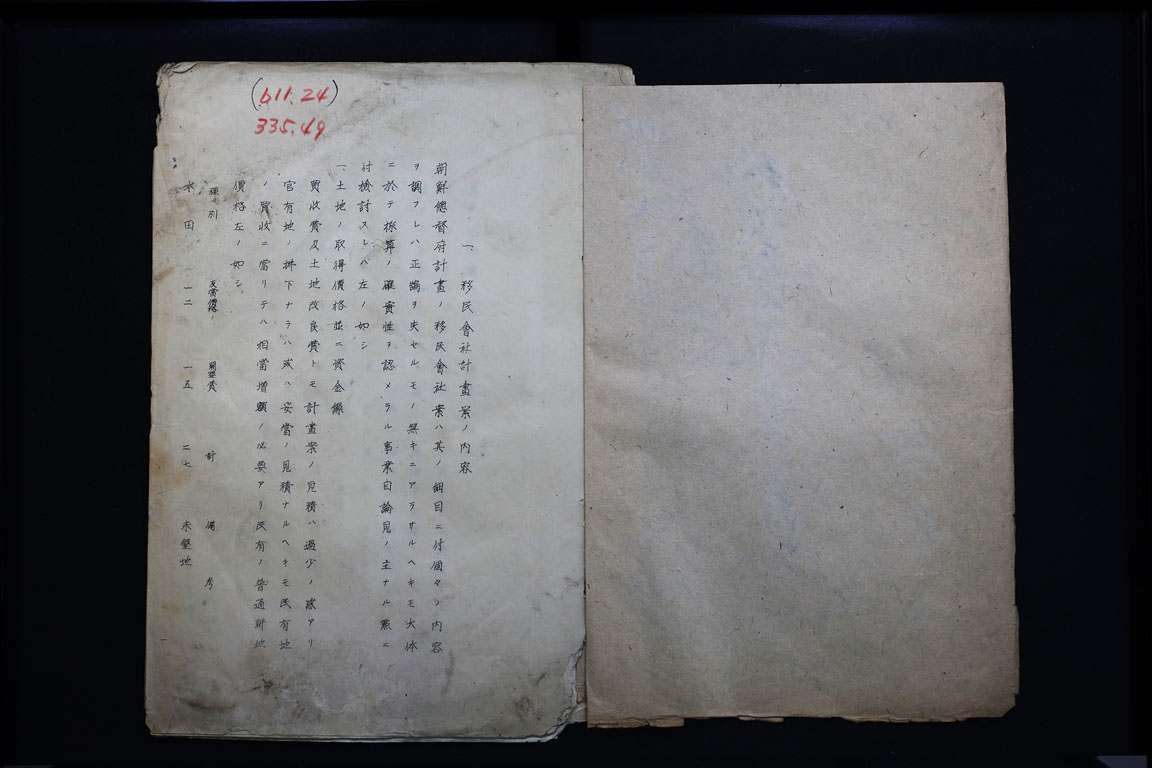 (611.24)
335.49
一、移民會社計畫案ノ內容
朝鮮總督府計畫ノ移民會社案ハ其ノ細目ニ付個々ノ內容
ヲ調フレハ正鵠ヲ失セルモノ無キニアラサルヘキモ大体
ニ於テ採算ノ確實性ヲ認メラル事業目論見ノ主ナル點ニ
付檢討スレハ左ノ如シ
一、土地ノ取得價格並ニ資金
買收費及土地改良費トモ計畫案ノ見積ハ過少ノ感アリ
官有地ノ拂下ナラハ或ハ妥當ノ見積ナルヘキモ民有地
ノ買收ニ當リテハ相當增額ノ必要アリ民有ノ普通耕地
價格左ノ如シ
種別 反當價格 開墾費 計 備考
水田 一二 一五 二七 未墾地